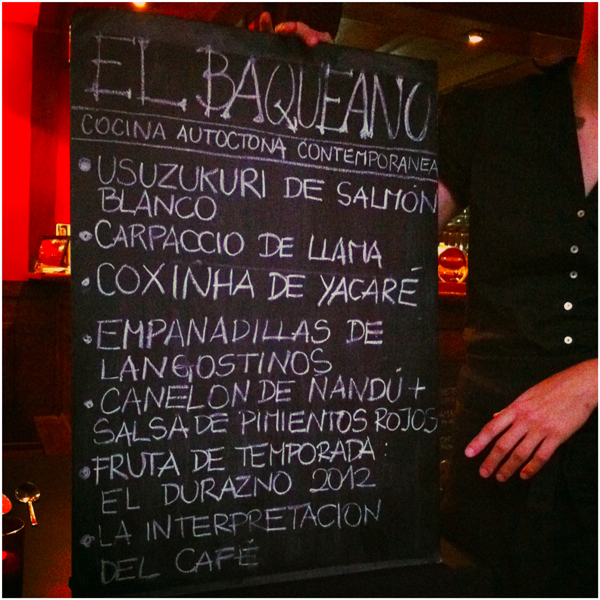 EL BAQUEANO
COCINA AUTOCTONA CONTEMPORANEA
• USUZUKURI DE SALMÓN
BLANCO
• CARPACCIO DE LLAMA
• COXINHA DE YACARÉ
• EMPANADILLAS DE
LANGOSTINOS
• CANELON DE ÑANDÚ +
SALSA DE PIMIENTOS ROJOS
• FRUTA DE TEMPORADA :
EL DURAZNO 2012
• LA INTERPRETACION
DEL CAFÉ